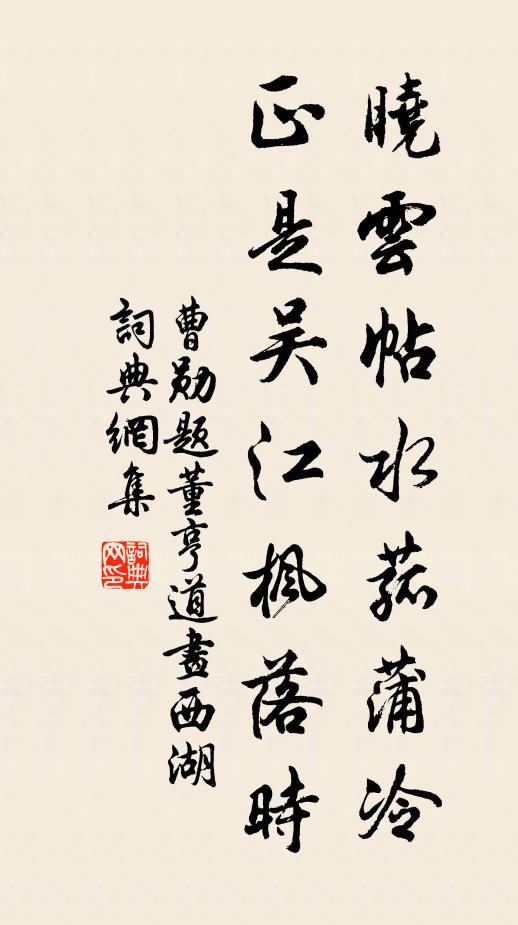 曉雲帖水菰蒲冷
正是吴江楓落時
曹勛題董亨道畫西湖
詞典網集
詞典
网印